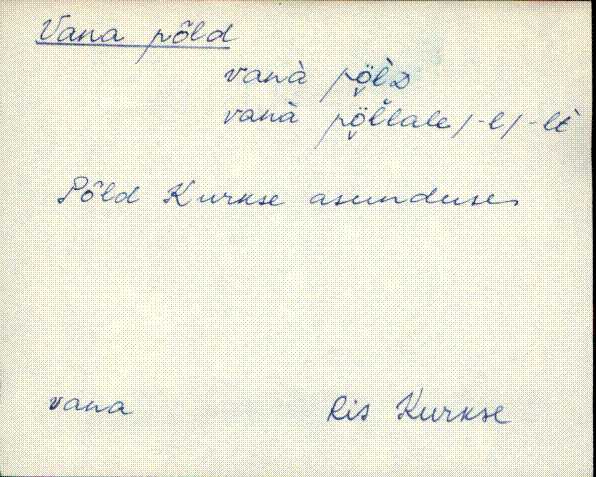 Vana põld
vanà pö̭l̀D
vanà pö̭l̆lale/-l/-lt
Põld Kurkse asunduses
vana Ris Kurkse